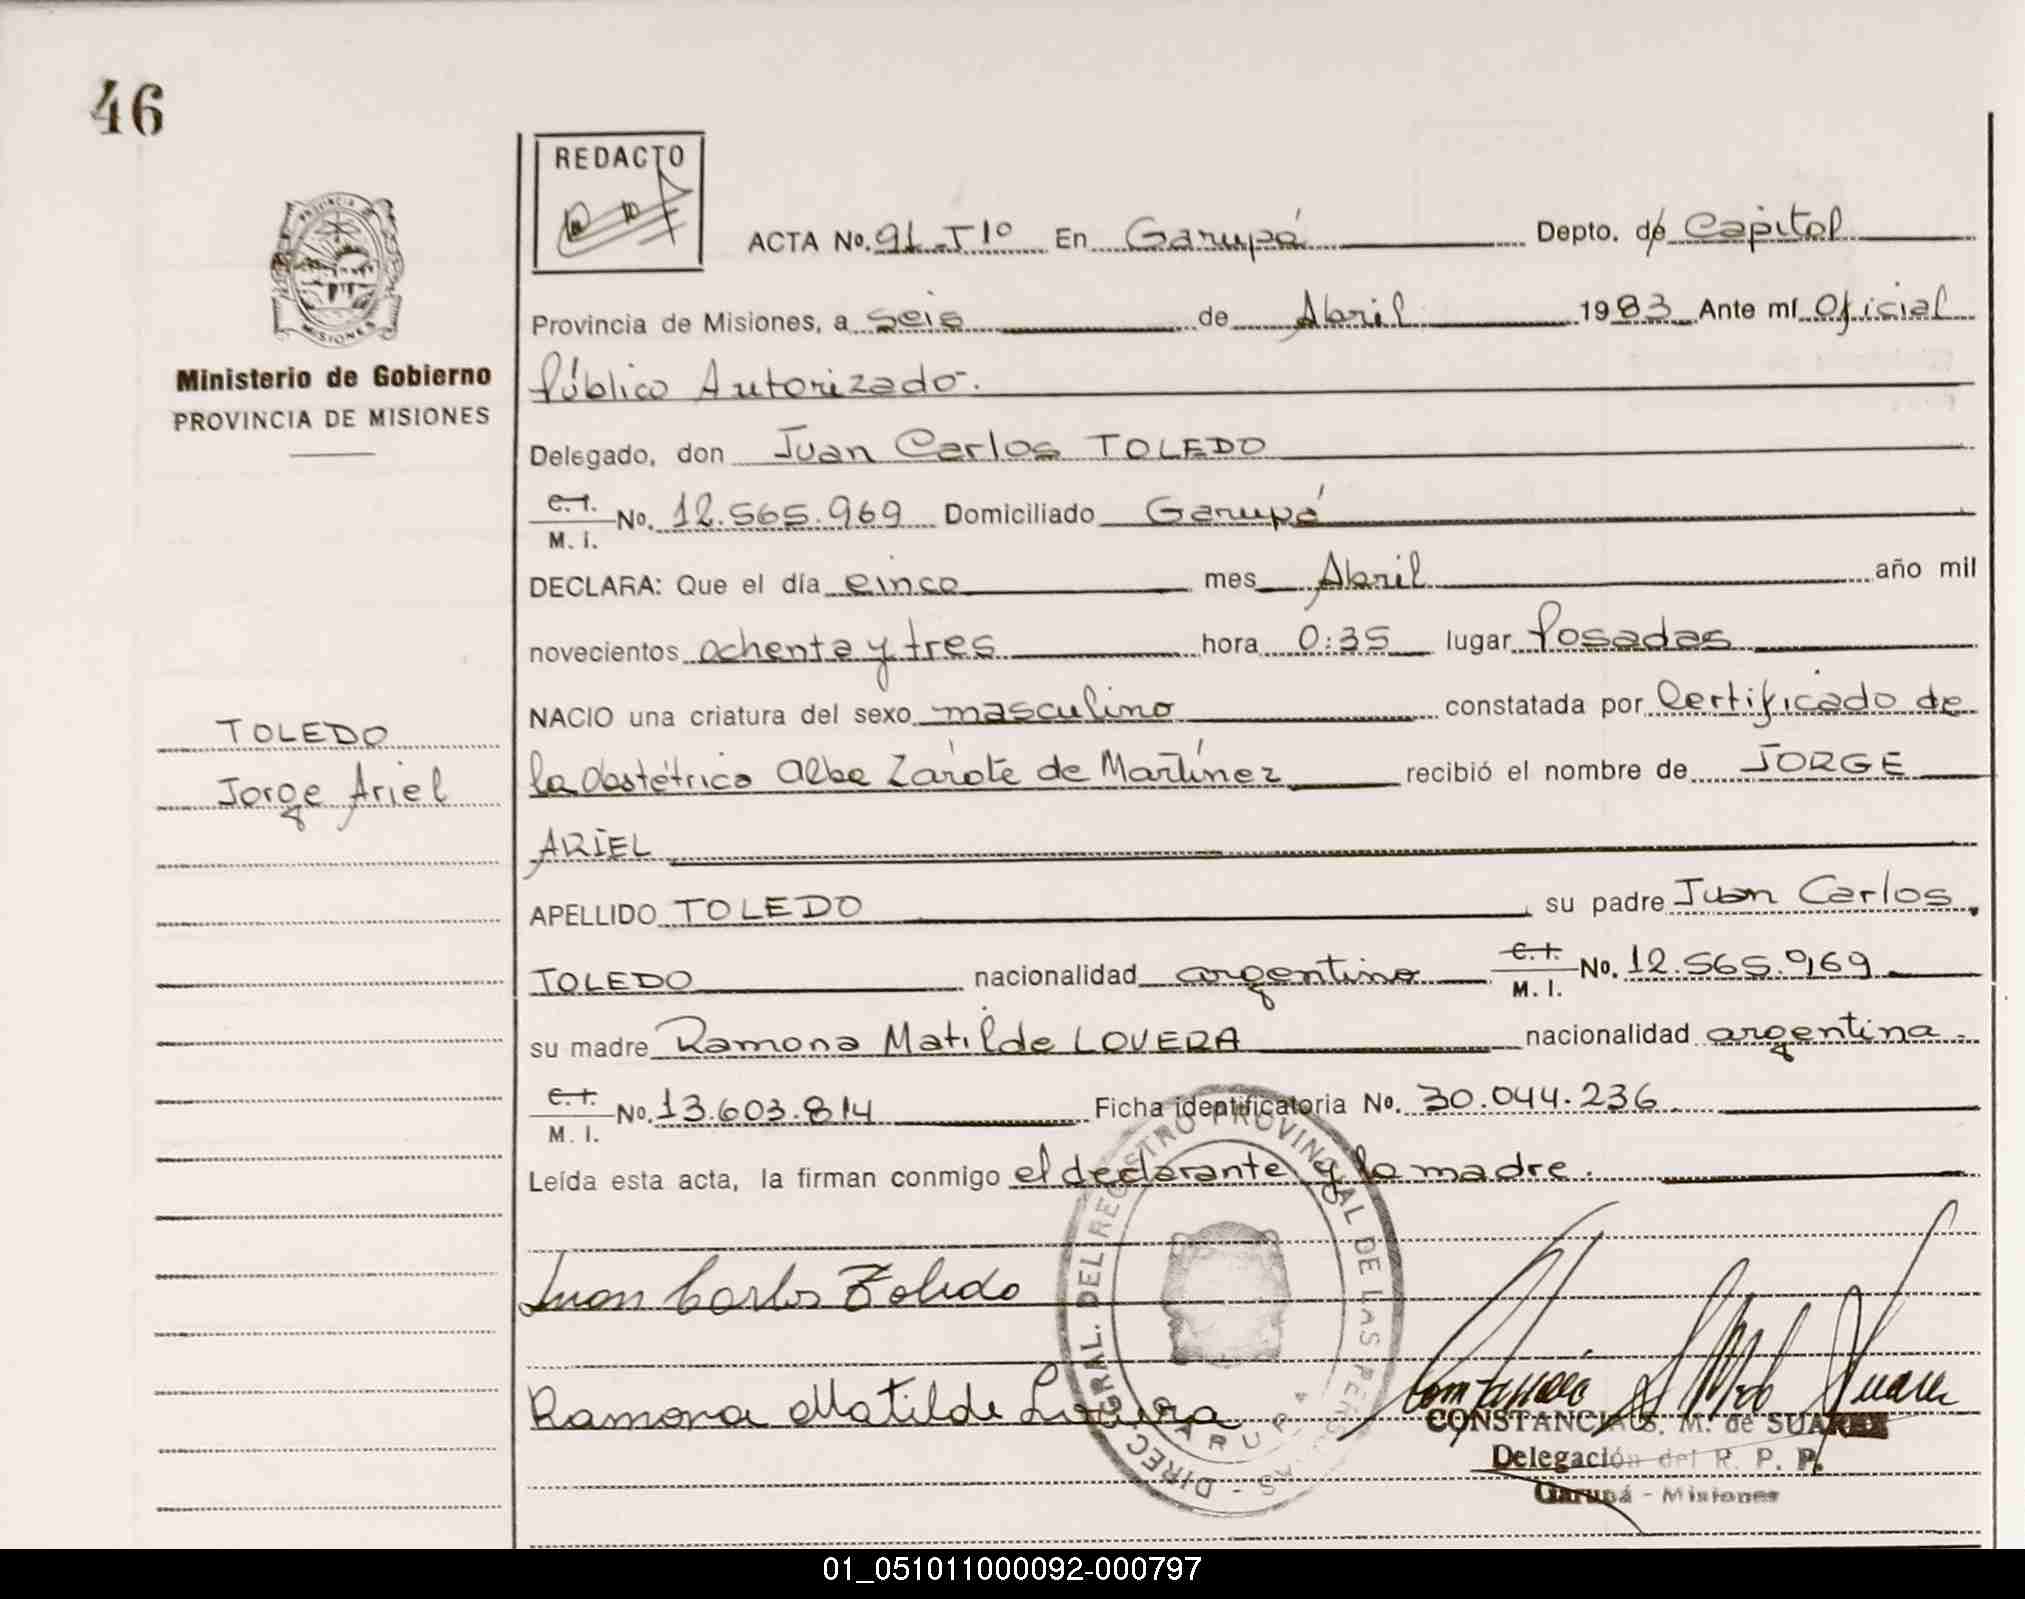 46
REDACTO
ACTA No. 91-Tº1º En Garupá Depto. de Capital
PROVINCIA DE MISIONES
Provincia de Misiones, a seis de Abril 1983 Ante mí Oficial
Ministerio de Gobierno
PROVINCIA DE MISIONES
Público Autorizado-.
Delegado, don Juan Carlos TOLEDO
C.I. M. I. No. 12.565.969 Domiciliado Garupá
DECLARA: Que el día cinco mes Abril año mil
novecientos ochenta y tres hora 0:35 lugar Posadas
NACIO una criatura del sexo masculino constatada por Certificado de
TOLEDO
la Obstétrica Alba Zárate de Martínez recibió el nombre de JORGE
Jorge Ariel
ARIEL
APELLIDO TOLEDO su padre Juan Carlos
TOLEDO nacionalidad argentino C.I. M. I. No. 12.565.969
su madre Ramona Matilde LOVERA nacionalidad argentina.
C.I. M. I. No. 13.603.814 Ficha identificatoria No. 30.044.236
Leída esta acta, la firman conmigo el declarante y la madre.
Juan Carlos Toledo
Ramona Matilde Lovera
DIREC. GRAL. DEL REGISTRO PROVINCIAL DE LAS PERSONAS -
GARUPA
CONSTANCIA S. M. de SUAREZ
Delegación del R. P. P.
Garupá - Misiones
01_051011000092-000797